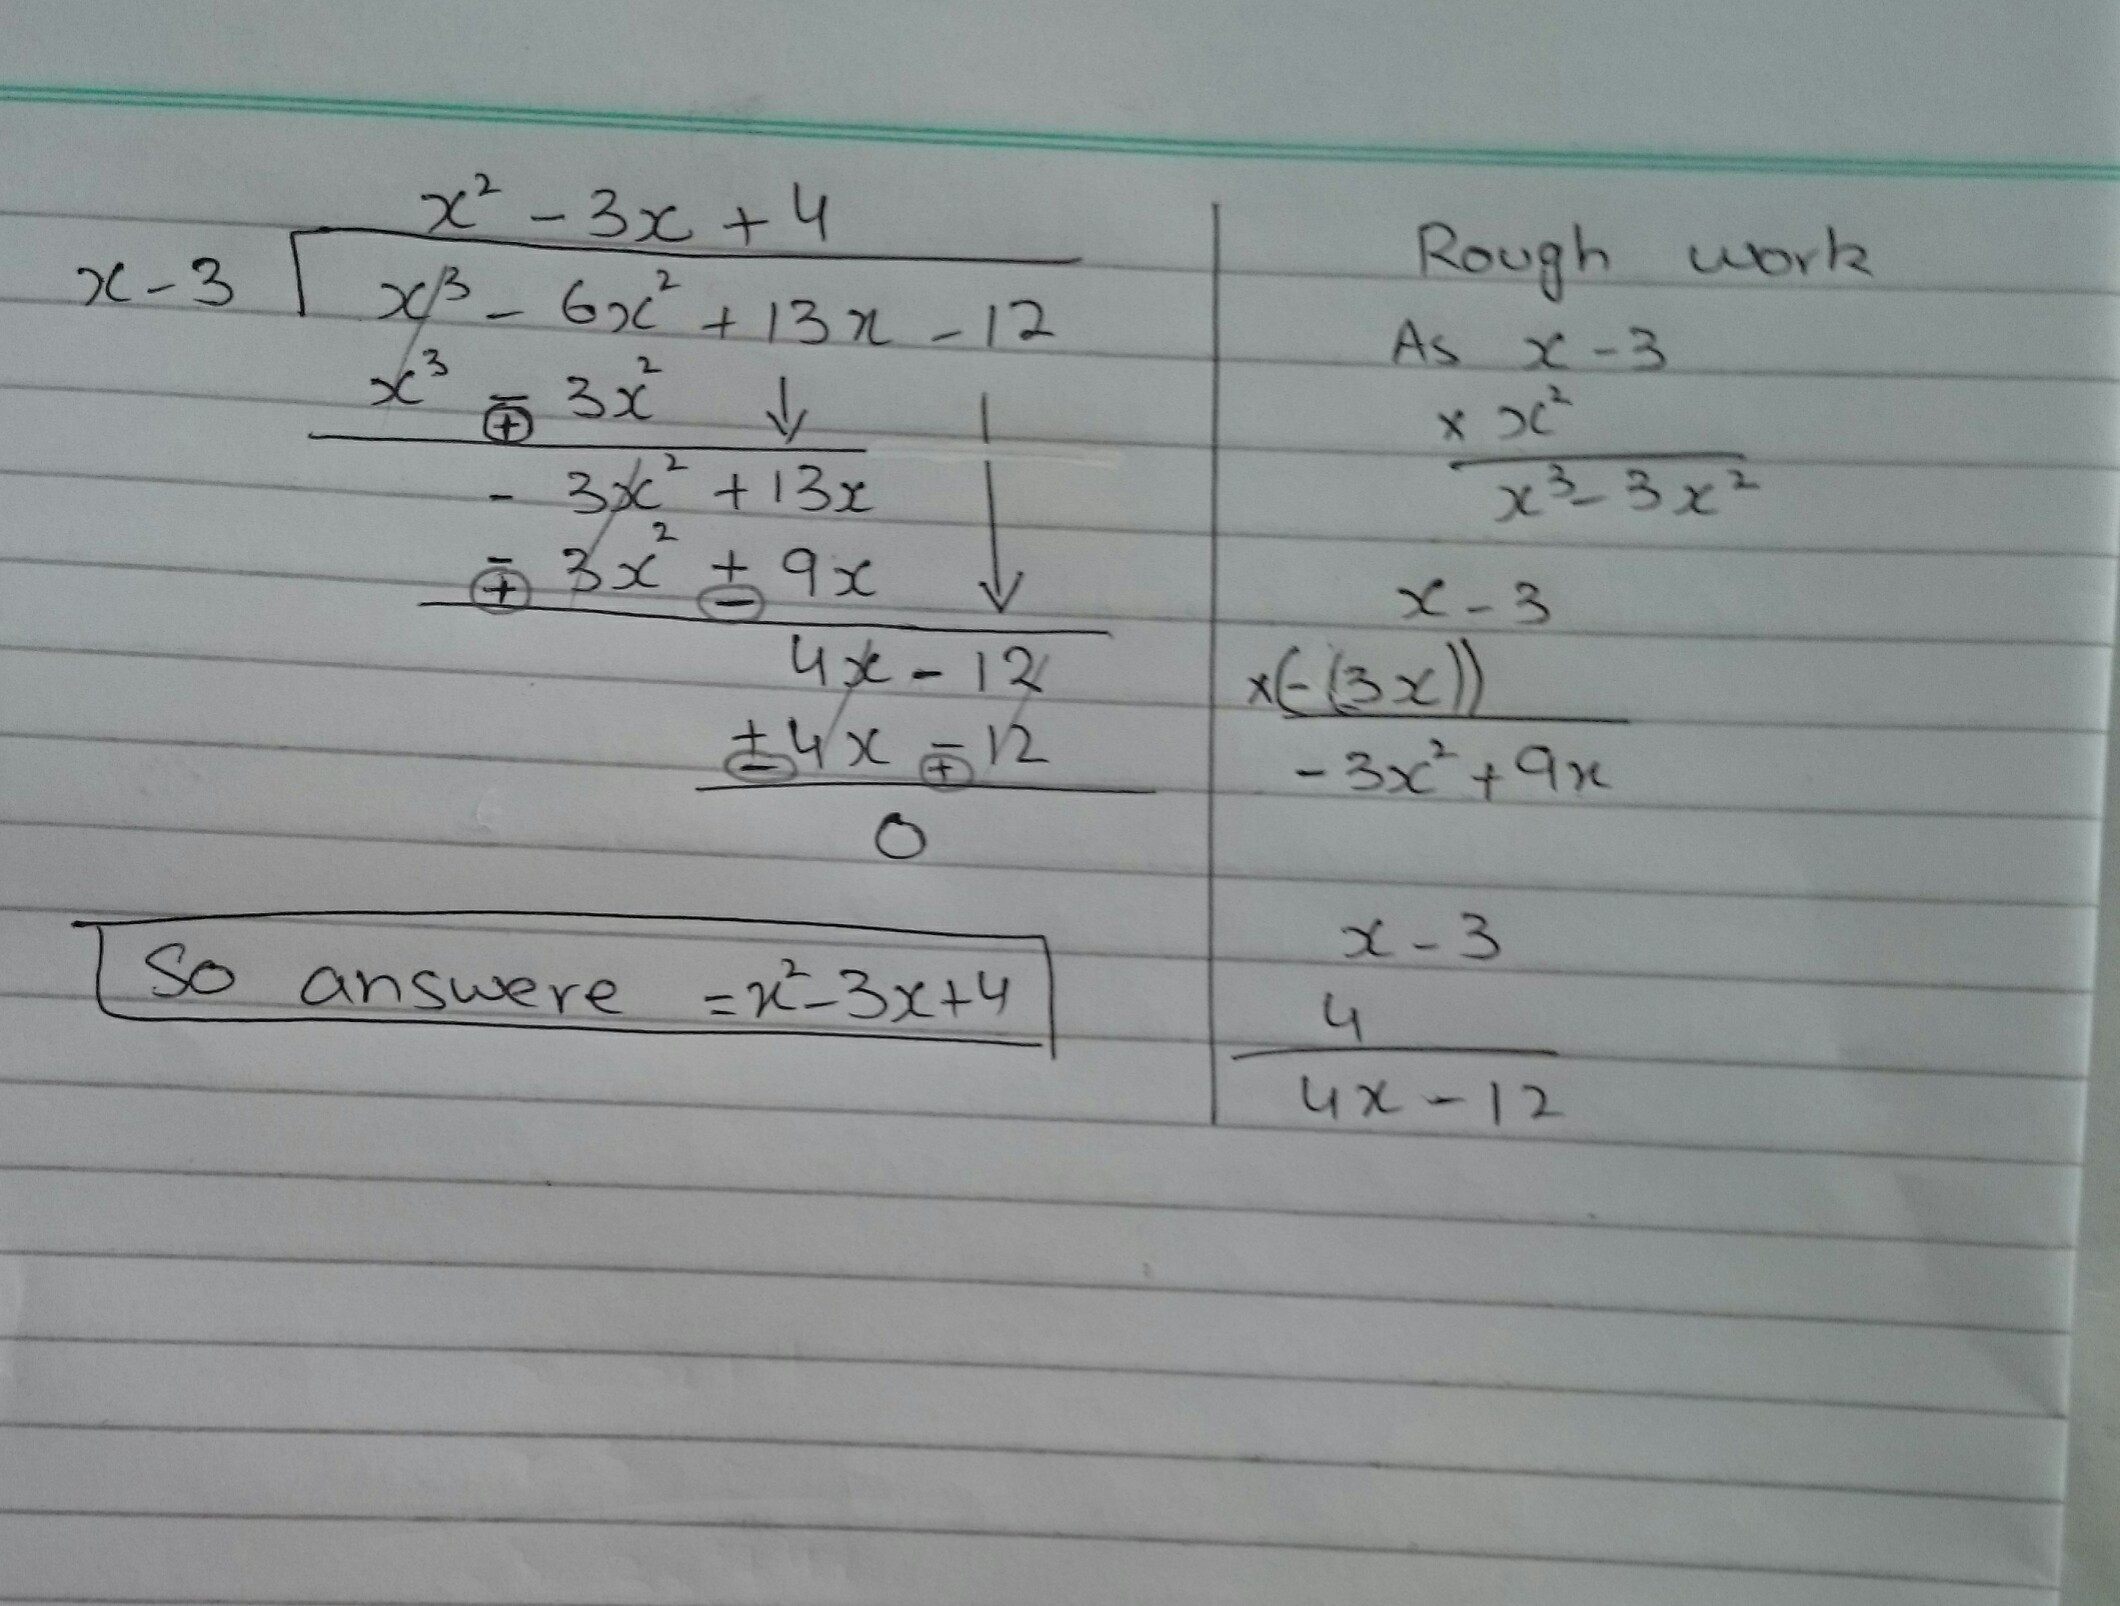 x² - 3x + 4
x - 3 x³ - 6x² + 13x - 12
x³ - 3x²
⊕
- 3x² + 13x
- 3x² + 9x
⊕ ⊖
4x - 12
+ 4x - 12
⊖ ⊕
0
So answere = x² - 3x + 4
Rough work
As x - 3
× x²
x³ - 3x²
x - 3
×(-(3x))
- 3x² + 9x
x - 3
4
4x - 12